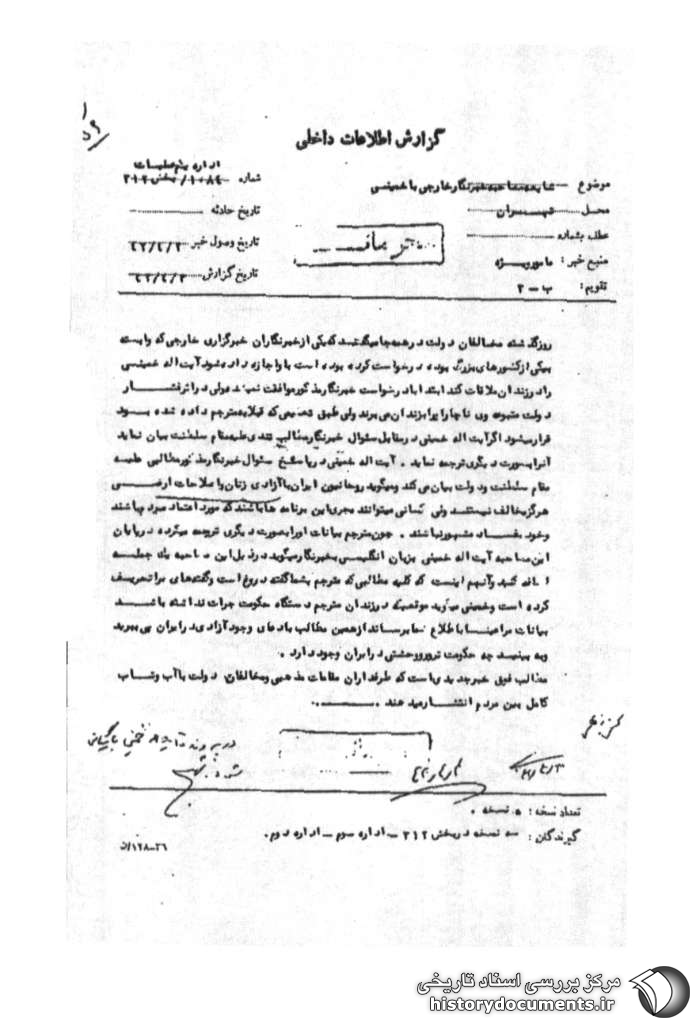 گزارش اطلاعات داخلی
اداره یکم عملیات
موضوع شایعه مصاحبه خبرنگار خارجی با خمینی
شماره ۳۱۲
محل تهران
تاریخ حادثه
عطف بشماره
تاریخ وصول خبر ۴۳/۴/۲
منبع خبر: مامور ویژه
تاریخ گزارش ۴۳/۴/۳
تقویم: ب-۲
روز گذشته مخالفان دولت در همه جا میگفتند که یکی از خبرنگاران خبرگزاری خارجی که وابسته
بیکی از کشورهای بزرگ بوده درخواست کرده بوده است با و اجازه داده شود آیت اله خمینی
را در زندان ملاقات کند ابتدا با درخواست خبرنگار مذکور موافقت نمیشد ولی در اثر فشار
دولت متبوعه وی ناچارا ویرا بزندان میبرند ولی طبق تصمیمی که قبلا بمترجم داده شده بود
قرار میشود اگر آیت اله خمینی در مقابل سئوال خبرنگار مطالب تندی علیه مقام سلطنت بیان نماید
آنرا بصورت دیگری ترجمه نماید . آیت اله خمینی در پاسخ سئوال خبرنگار مذکور مطالبی علیه
مقام سلطنت و دولت بیان می کند و میگوید روحانیون ایران با آزادی زنان یا اصلاحات ارضی
هرگز مخالف نیستند ولی کسانی میتوانند مجری این برنامه ها باشند که مورد اعتماد مردم باشند
و خود بفساد مشهور نباشند . چون مترجم بیانات او را بصورت دیگری ترجمه میکرده در پایان
این مصاحبه آیت اله خمینی بزبان انگلیسی بخبرنگار میگوید در ذیل این مصاحبه یک جمله
اضافه کنید و آنهم اینست که کلیه مطالبی که مترجم بشما گفته دروغ است و گفته های مرا تحریف
کرده است و خمینی میگوید موقعیکه در زندان مترجم دستگاه حکومت جرات نداشته باشد
بیانات مرا عینا باطلاع شما برساند از همین مطالب بادعای وجود آزادی در ایران پی ببرید
و به بینید چه حکومت ترور و وحشتی در ایران وجود دارد .
مطالب فوق خبر جدیدی است که طرفداران مقامات مذهبی و مخالفان دولت با آب و تاب
کامل بین مردم انتشار میدهند .
در پرونده آیت اله خمینی بایگانی
شود
تعداد نسخه : ۵ نسخه .
گیرندگان : سه نسخه در بخش ۳۱۲ - اداره سوم - اداره دوم .
مرکز بررسی اسناد تاریخی
historydocuments.ir